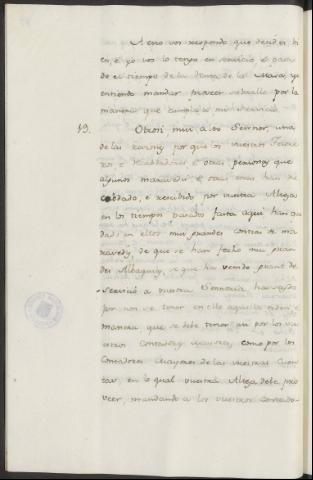 A esto vos respondo que decides bi
en, e yo vos lo tengo en servicio, e pasa
do el tiempo de la dicha yo
entiendo mandar proveer sobrello por la
manera que cumple a mi servicio
19. Otrosi mui alto Sennor, una
de las razones por que los vuestros Tesore
ros e Recabdadores e otras personas que
algunos maravedis e otras cosas han re
cabdado, e recibido por vuestra Alteza
en los tiempos pasados fasta aqui han
dado en ellos mui grandes contias de ma
ravedis, de que se han fecho mui gran
des Albaquias, e que ha venido grant de
servicio a vuestra Sennoria ha seydo
por non se tener en ello aquella orden e
manera que se debe tener asi por los vu
estros Contadores mayores, como por los
Contadores mayores de las vuestras Cuen
tas, en lo qual vuestra Alteza debe pro
veer, mandando a los vuestros Contado-